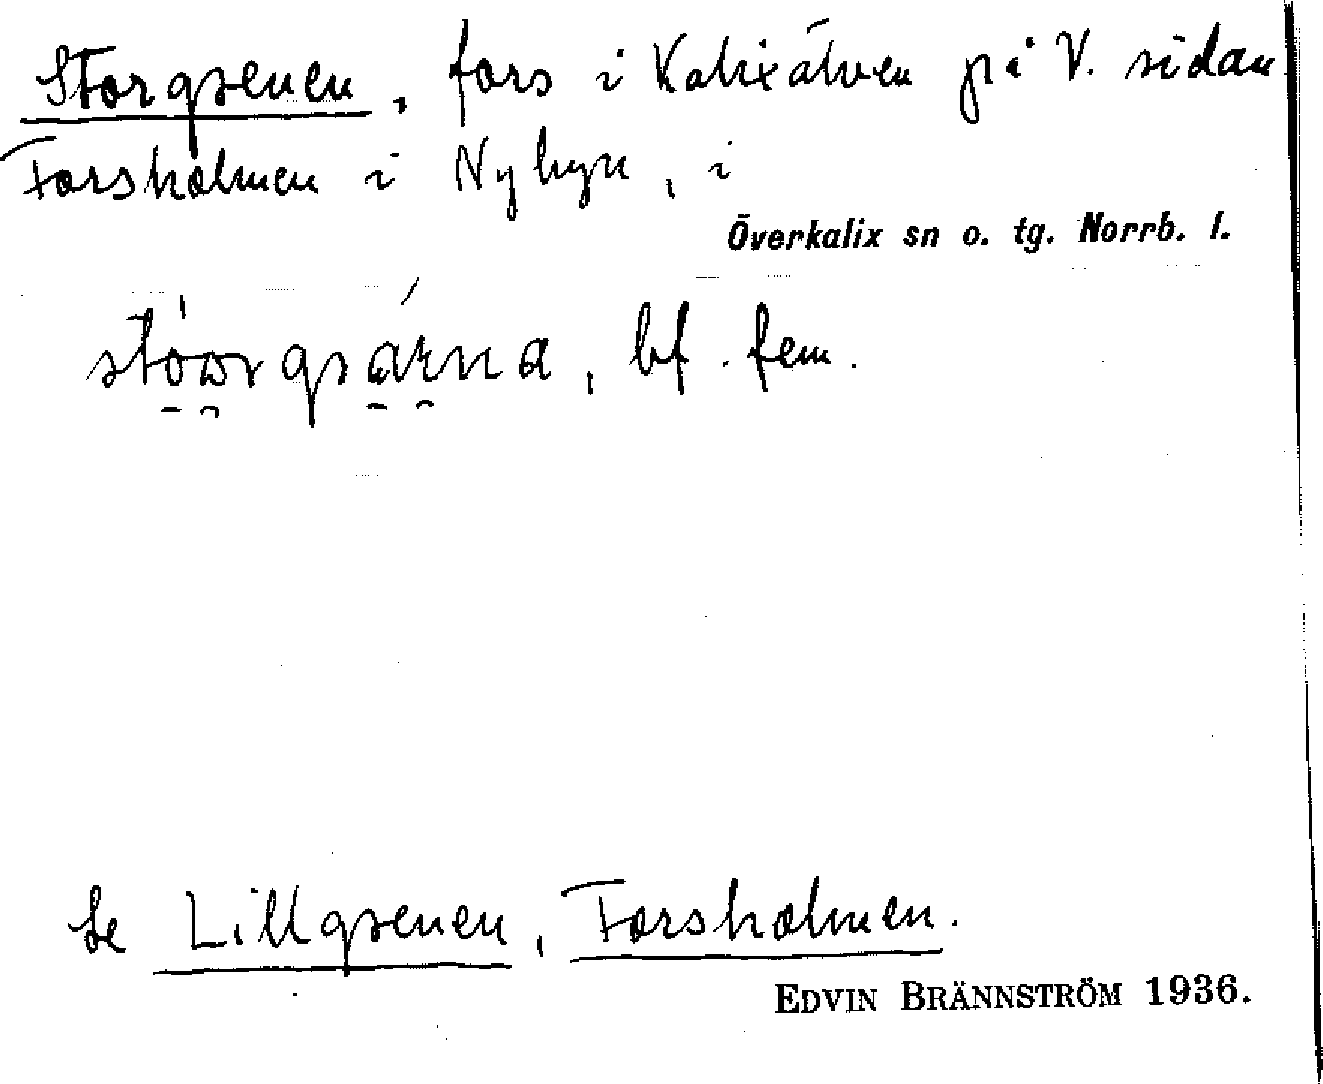 Storgrenen, fors i Kalixälven på V. sidan
Forsholmen i Nybyn, i
Överkalix sn o. tg. Norrb. l.
bf. fem.
Se Lillgrenen, Forsholmen.
EDVIN BRÄNNSTRÖM 1936.